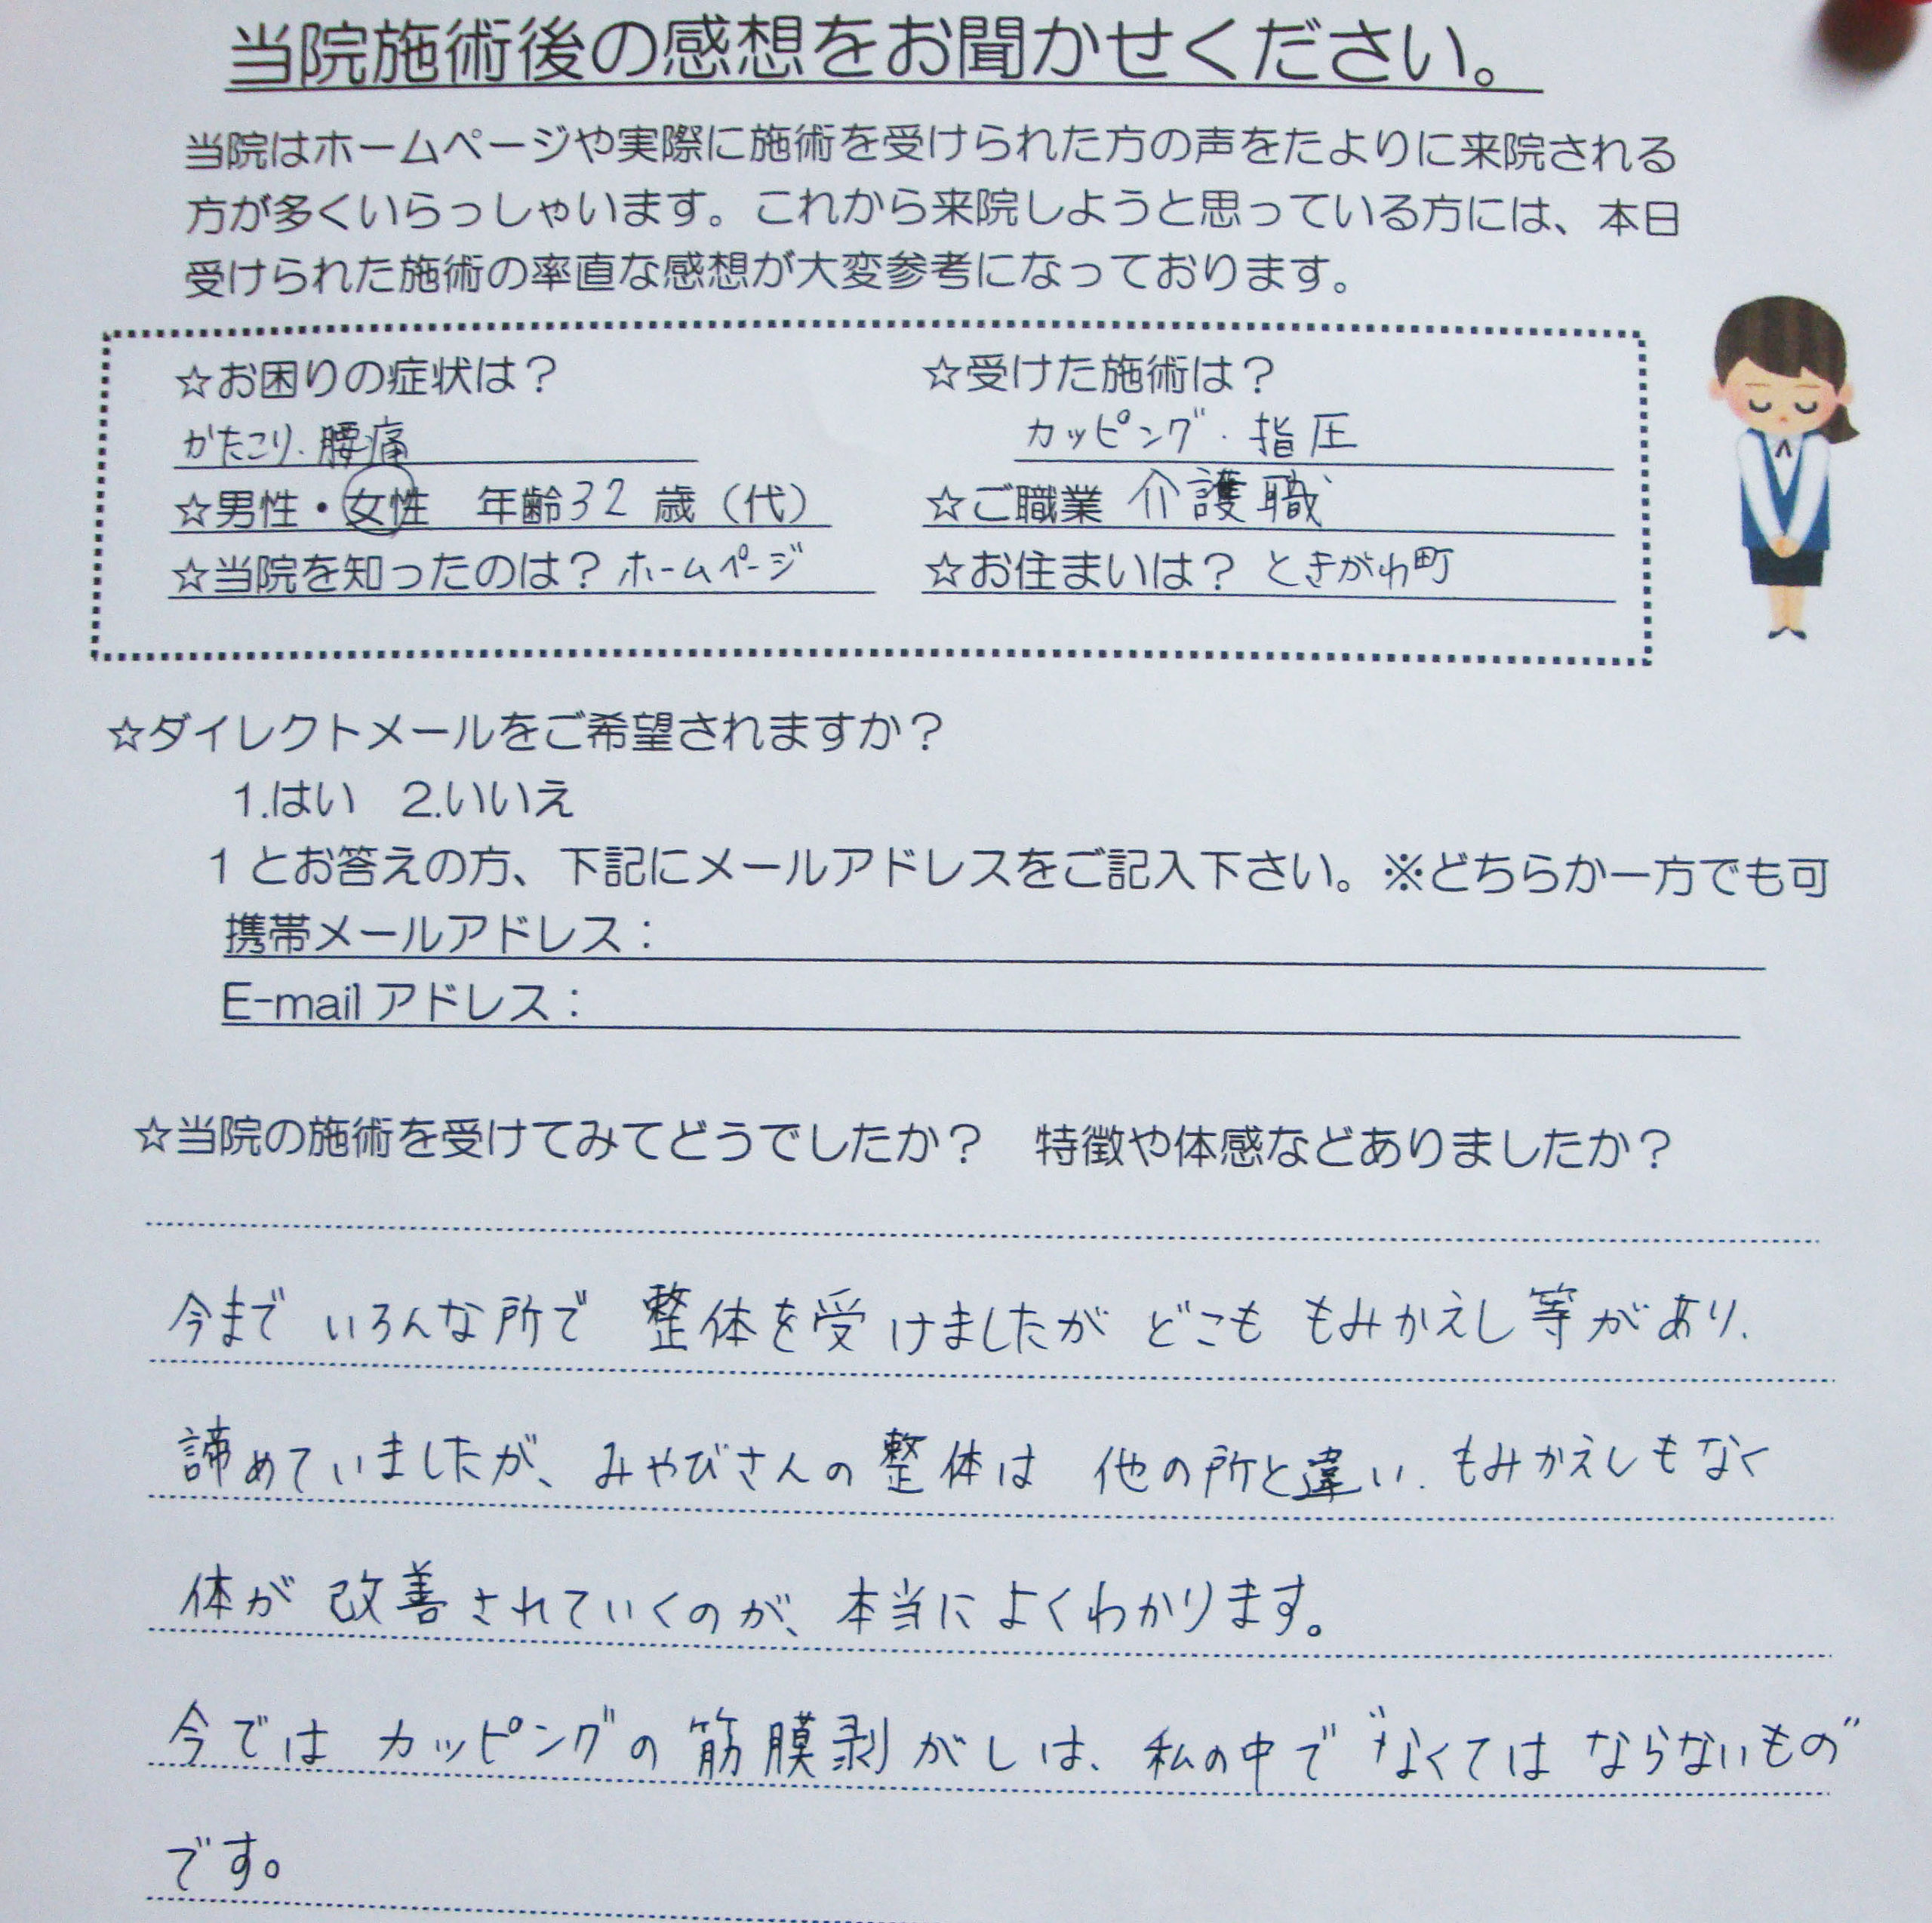 当院施術後の感想をお聞かせください。
当院はホームページや実際に施術を受けられた方の声をたよりに来院される
方が多くいらっしゃいます。これから来院しようと思っている方には、本日
受けられた施術の率直な感想が大変参考になっております。
☆お困りの症状は？
かたこり.腰痛
☆受けた施術は？
カッピング・指圧
☆男性・女性 年齢32歳（代）
☆ご職業 介護職
☆当院を知ったのは？ホームページ
☆お住まいは？ときがわ町
☆ダイレクトメールをご希望されますか？
1.はい 2.いいえ
1とお答えの方、下記にメールアドレスをご記入下さい。※どちらか一方でも可
携帯メールアドレス：
E-mailアドレス：
☆当院の施術を受けてみてどうでしたか？ 特徴や体感などありましたか？
今まで いろんな所で 整体を受けましたが どこも もみかえし等があり、
諦めていましたが、みやびさんの整体は 他の所と違い、もみかえしもなく
体が 改善されていくのが、本当によくわかります。
今では カッピングの筋膜剥がしは、私の中で〝なくてはならないもの〟
です。